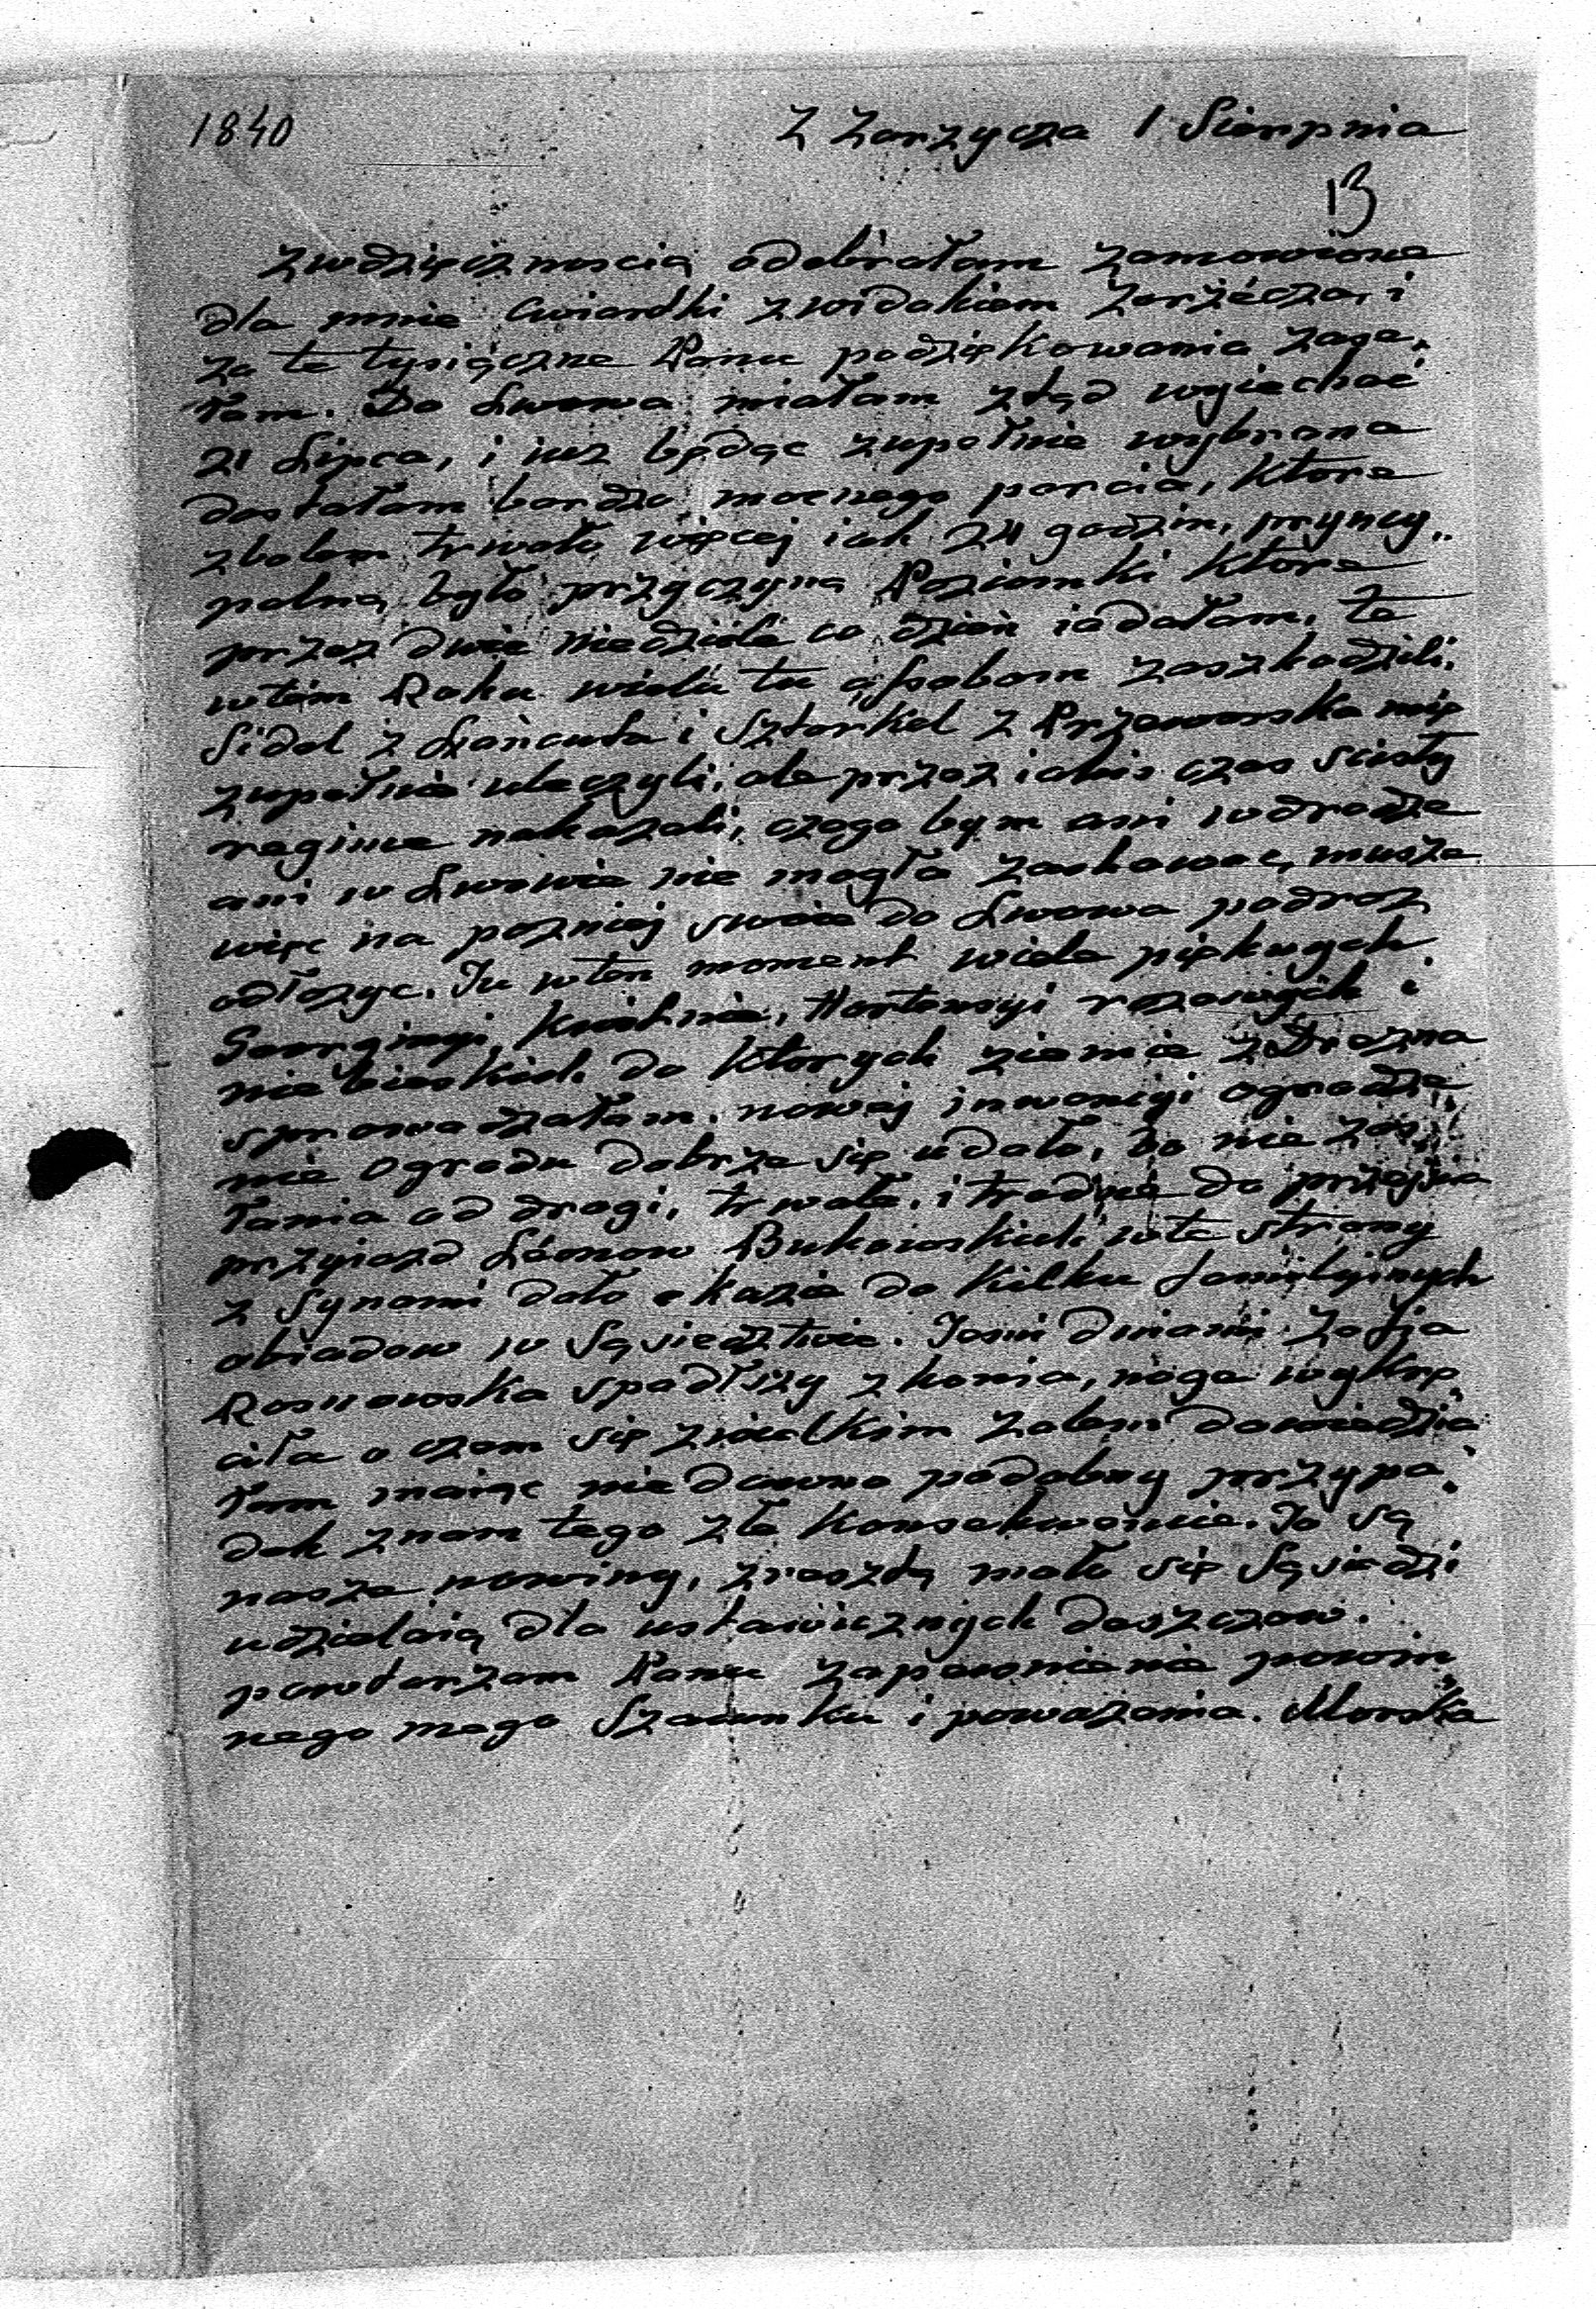 1840 Z Zarzycza 1 Sierpnia
13
z wdzięcznoscią odebrałam zamowione
dla mnie cwiartki z widokiem Zarżécza, i
za te tysiączne Panu podziękowania zase„
łam. Do Lwowa miałam ztąd wyiechać
21 Lipca, i iuz będąc zupełnie wybrana
dostałam bardzo mocnego parcia, ktore
z bolem trwało więcej iak 24 godzin, pryncy„
palną było przyczyną Poziomki ktore
przez dwie niedziele co dzień iadałam, te
w tém Roku wielu tu osobom zaszkodzili.
Sidel z Łańcuta i Sztarkel z Przeworska mię
zupełnie uleczyli, ale przez iakis czas scisły
regime nakazali, czego bym ani w drodze
ani w Lwowie nie mogła zachowac, musze
więc na pozniej swoie do Lwowa podroz
odłozyc. Tu w ten moment wiele pięknych
Georginyi kwitnie, Hortensyi rozowych i
niebieskich do ktorych ziemie z Drezna
sprowadzałam. nowej inwencyi ogrodze„
nie ogrodu dobrze się udało, bo nie zas„
łania od drogi, trwałe, i trudne do przejscia
przyiazd Léonow Bukowskich w te strony
z Synami dało okazie do kilku familyinych
obiadow w Sąsiedztwie. Temi dniami Zofja
Rosnowska spadłszy z konia, noge wykrę
ciła o czem się z wielkim zalem dowiedzia
łam maiąc nie dawno podobny przypa
dek znam tego złe konsekwencie. To są
nasze nowiny, zresztą mało się Sąsiedzi
udzielaią dla ustawicznych deszczow.
powtarzam Panu zapewnienie powin
nego mego Szacunku i powazania. Morska